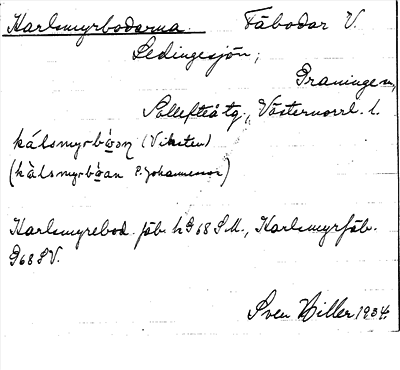 Karlsmyrbodarna. Fäbodar V.
Ledingesjön;
Graningen,
Sollefteå tg., Västernorrl. l.
kálsmyrbǻon (Viksten)
(kàlsmyrbǻan P. Johannesson)
Karlsmyrebod. fäb. h G68 S.M., Karlsmyrfäb.
G68 SV.
Sven Hiller 1934.